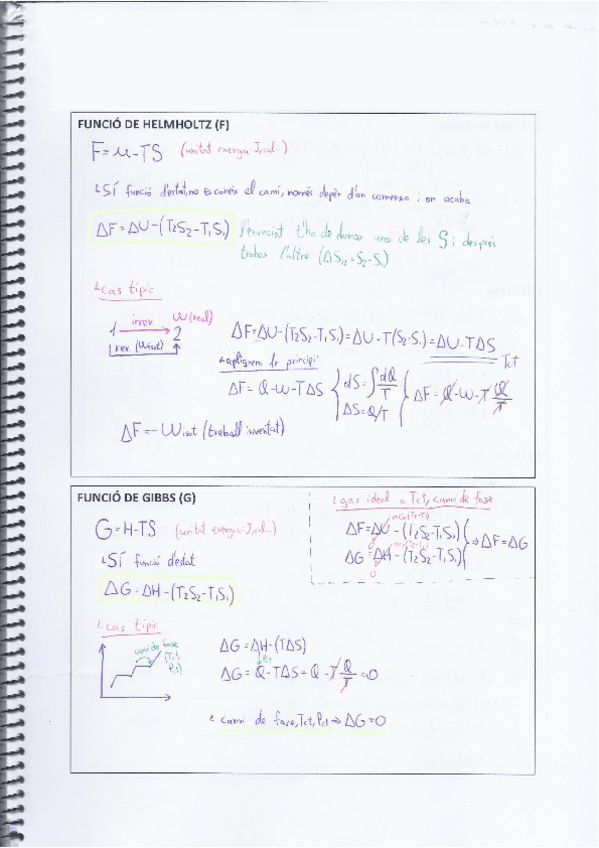 FUNCIÓ DE HELMHOLTZ (F)
F = u - TS (unitat energia J, cal...)
↳ SÍ funció d'estat, no es coneix el camí, només depèn d'on comença i on acaba
ΔF = ΔU - (T2S2 - T1S1) l'enunciat t'ha de donar una de les S i després
trobar l'altre (ΔS12 = S2 - S1)
↳ cas típic
1 irrev W(real) 2
rev (Wisot)
ΔF = ΔU - (T2S2 - T1S1) = ΔU - T(S2 - S1) = ΔU - TΔS
Tct
↳ apliquem 1r principi
ΔF = Q - W - TΔS { dS = ∫ dQ/T
ΔS = Q/T { ΔF = Q - W - T Q/T
ΔF = - Wisot (treball inventat)
FUNCIÓ DE GIBBS (G)
G = H - TS (unitat energia: J, cal...)
↳ SÍ funció d'estat
ΔG = ΔH - (T2S2 - T1S1)
↳ gas ideal a Tct, canvi de fase
ΔF = ΔU - (T2S2 - T1S1)
0
ΔG = ΔH - (T2S2 - T1S1)
0
⇒ ΔF = ΔG
↳ cas típic
canvi de fase
(Tct
Pct)
ΔG = ΔH - (TΔS)
Pct
ΔG = Q - TΔS = Q - T Q/T = 0
↳ canvi de fase, Tct, Pct ⇒ ΔG = 0